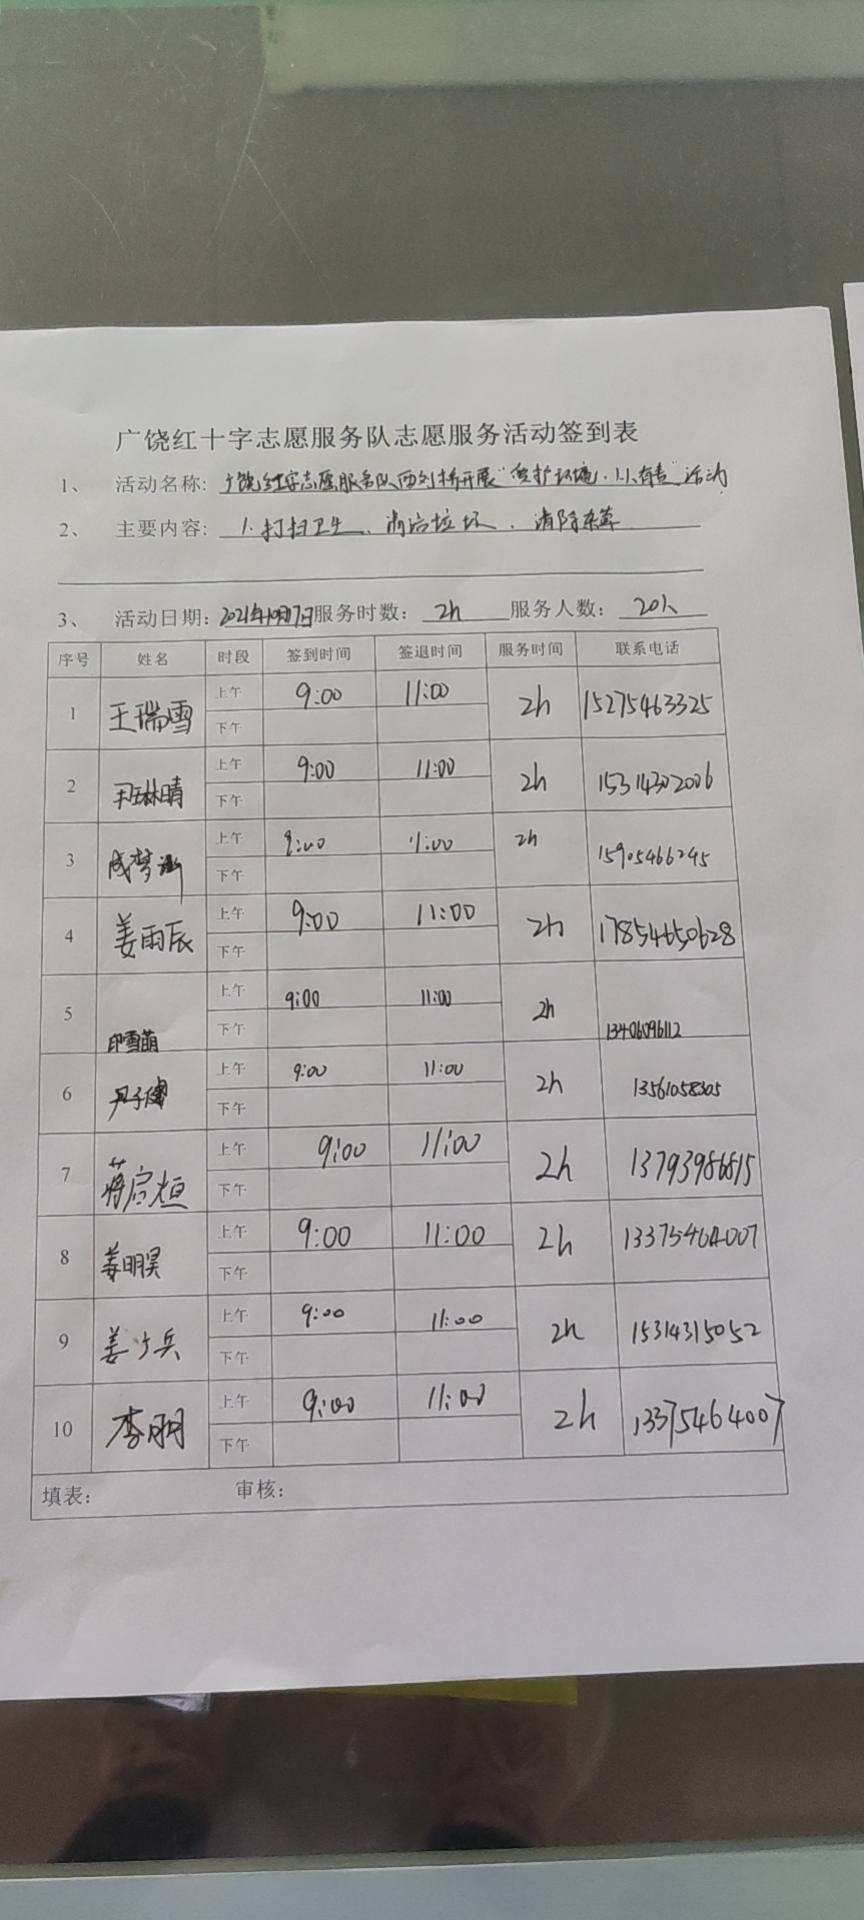 广饶红十字志愿服务队志愿服务活动签到表
1、 活动名称: 广饶红十字志愿服务队西刘桥开展"爱护环境,人人有责"活动
2、 主要内容: 1.打扫卫生、清洁垃圾、清除杂草
3、 活动日期: 2021年10月17日 服务时数: 2h 服务人数: 20人
序号 姓名 时段 签到时间 签退时间 服务时间 联系电话
1 王瑞雪 上午 9:00 11:00 2h 15275463325
下午
2 王琳晴 上午 9:00 11:00 2h 15314302006
下午
3 成梦涵 上午 9:00 11:00 2h 15905466245
下午
4 姜雨辰 上午 9:00 11:00 2h 17854650628
下午
5 印雪萌 上午 9:00 11:00 2h 13406096112
下午
6 上午 9:00 11:00 2h 13561058305
下午
7 蒋启恒 上午 9:00 11:00 2h 13793986815
下午
8 姜明昊 上午 9:00 11:00 2h 13375464007
下午
9 姜少兵 上午 9:00 11:00 2h 15314315052
下午
10 李明 上午 9:00 11:00 2h 13375464007
下午
填表: 审核: